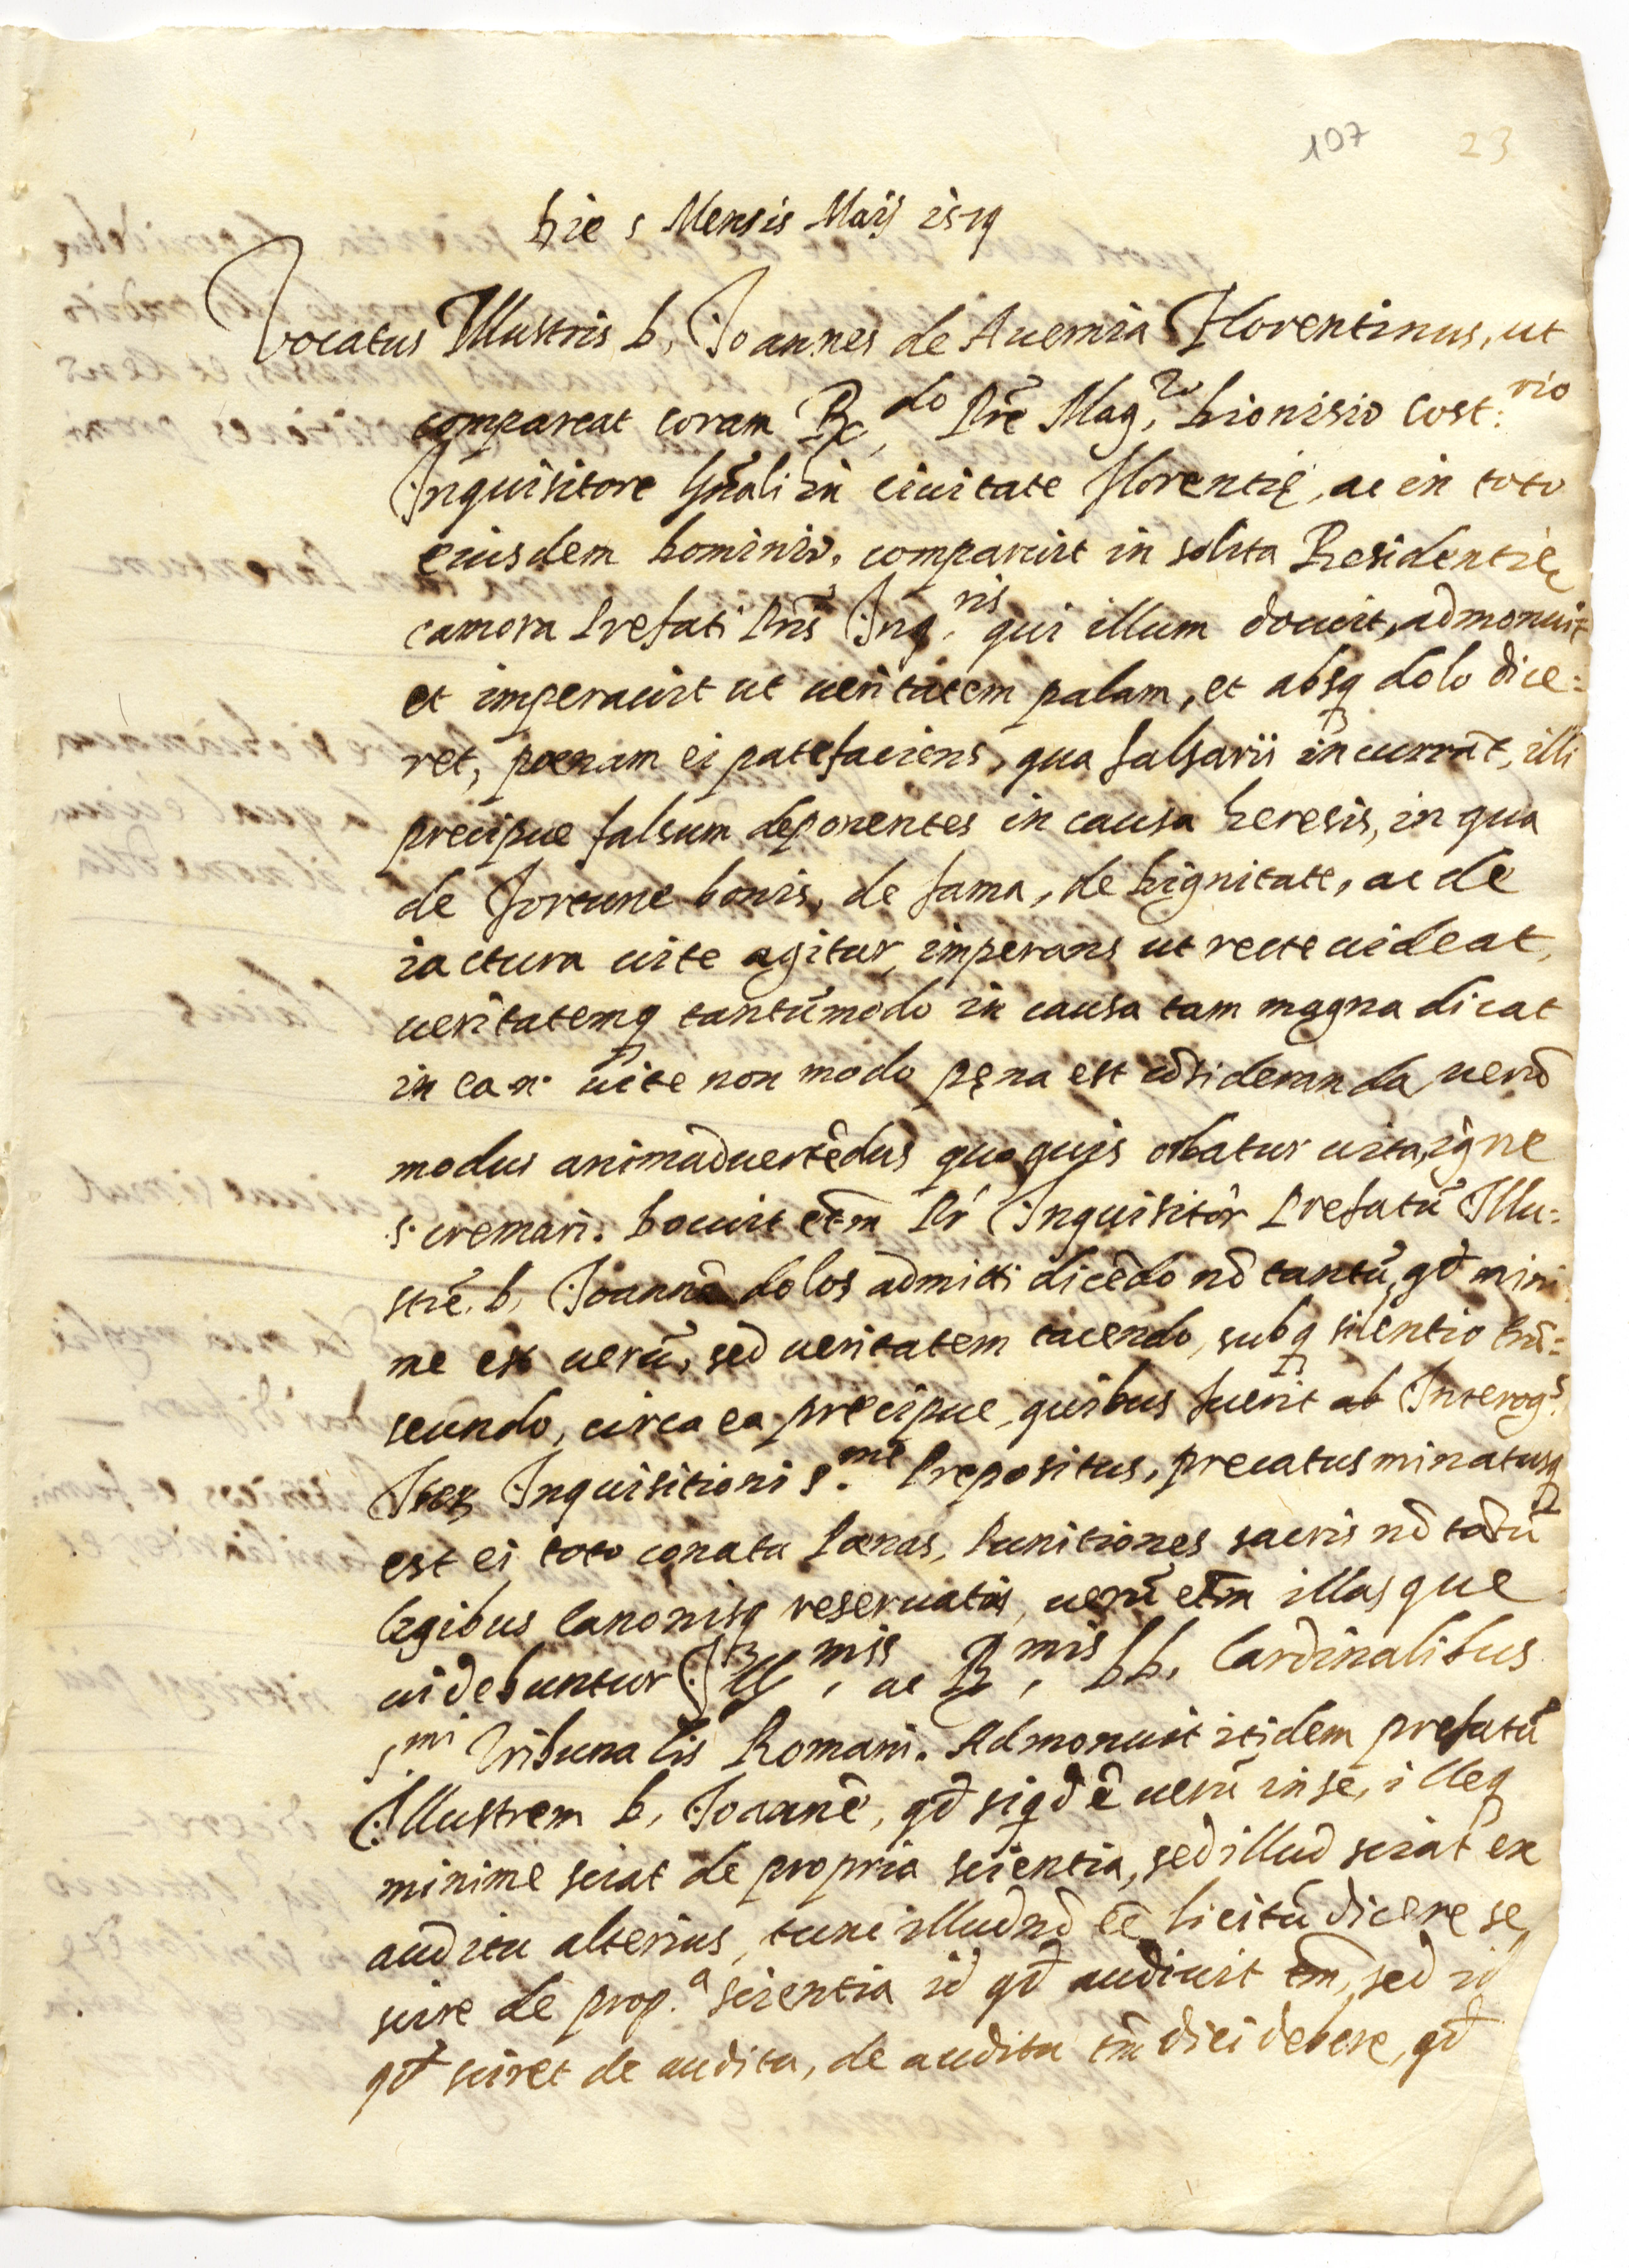 107 23
Die 5 Mensis Maij 1579
Vocatus Illustris D. Joannes de Auernia Florentinus, ut
compareat coram R.do Prẽ Mag.ro Dionisio Cost:rio
Inquisitore Gñali in ciuitate Florentię, ac in toto
eiusdem Dominio, comparuit in solita Residentię
camera Prefati Pris Inq.ris qui illum docuit, admonuit
et imperauit ut ueritatem palam, et absq dolo dice=
ret, poenam ei patefaciens, qua falsarii incurrãt, illi
precipue falsum deponentes in causa heresis, in qua
de Fortune bonis, de fama, de Dignitate, ac de
iactura uite agitur, imperans ut recte uideat,
ueritatemq tantũmodo in causa tam magna dicat
in ea n. uite non modo pęna est cõsideranda uerũ
modus animaduertẽdus quo quis orbatur uita, igne
s. cremari. Docuit etm Pr Inquisitor Prefatũ Illu=
strẽ. D. Joannẽ dolos admitti dicẽdo nõ tantũ, qđ mini
me est uerũ, sed ueritatem tacendo, subq silentio trã=
seundo, circa ea precipue, quibus fuerit ab Interog.s
Inquisitioni s.me Prepositus, precatus minatusq
est ei toto conatu Pœnas, Punitiones sacris nõ tãtũ
legibus Canonisq reseruatis, uerũ etm illas que
uidebuntur Ill.mis, ac R.mis DD. Cardinalibus
s.mi Tribunalis Romani. Admonuit itidem prefatũ
Illustrem D. Joannẽ, qđ siqđ ẽ uerũ in se, illeq
minime sciat de propria scientia, sed illud sciat ex
auditu alterius, tunc illud nõ eẽ licitũ dicere se
scire de prop.a scientia id qđ audiuit tm, sed id
qđ sciret de auditu, de auditu tm dici debere, qđ